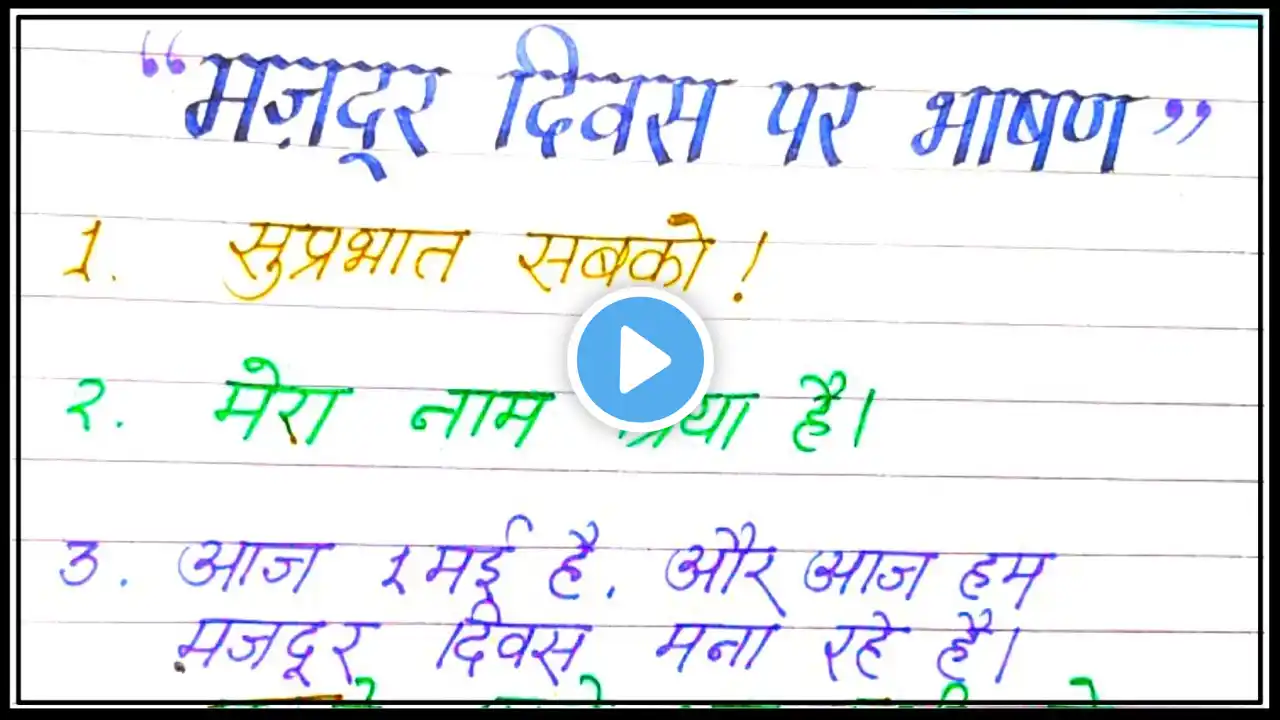 “मज़दूर दिवस पर भाषण”
1. सुप्रभात सबको!
२. मेरा नाम है।
3. आज 1 मई है, और आज हम
मजदूर दिवस मना रहे हैं।